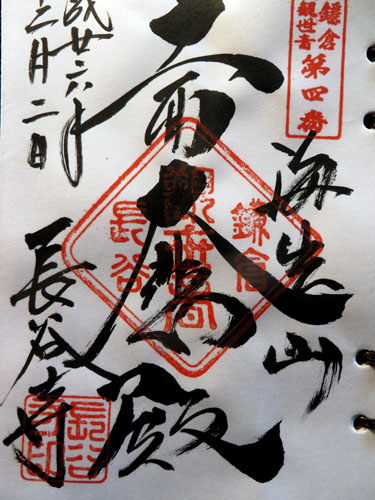 鎌倉
観世音
第四番
海光山
大悲殿
成廿六年
三月二日
長谷寺
鎌倉
長谷
長谷
寺印